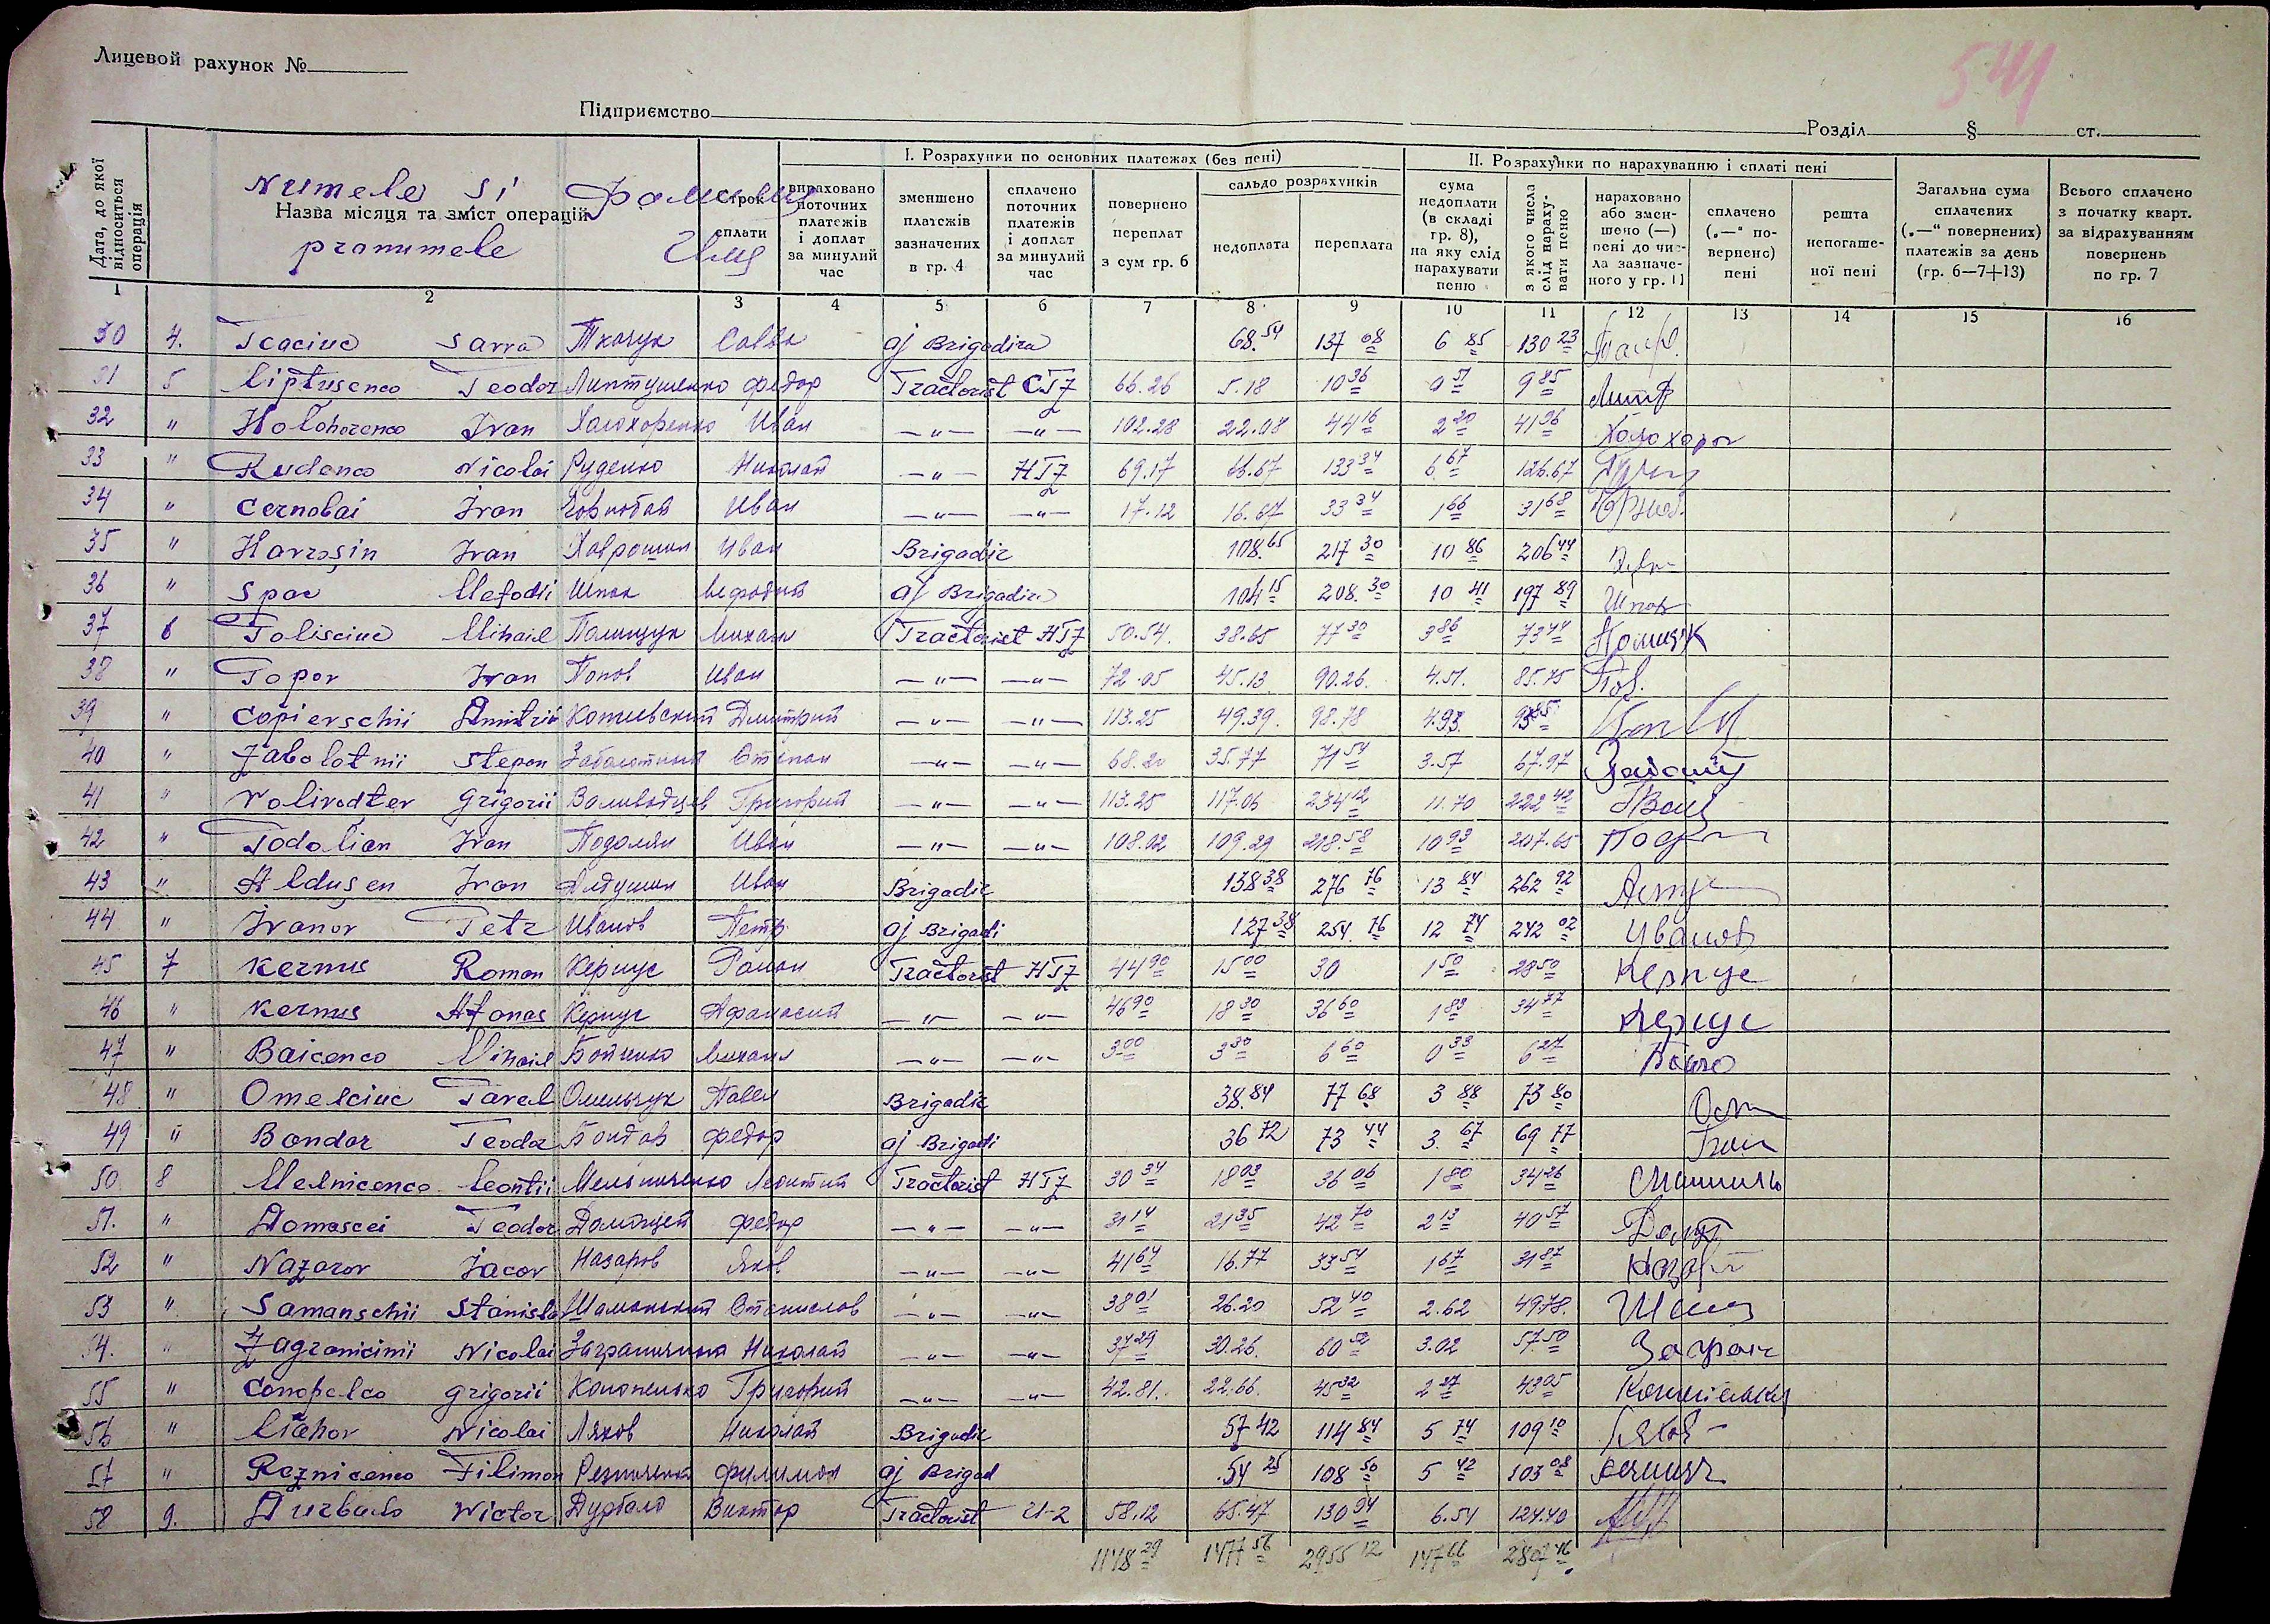 Лицевой рахунок №
541
Підприємство
Розділ § ст.
Дата, до якої відноситься операція
Numele si Фамилия
Назва місяця та зміст операцій
pronumele Имя
Строк сплати
І. Розрахунки по основних платежах (без пені)
вираховано поточних платежів і доплат за минулий час
зменшено платежів зазначених в гр. 4
сплачено поточних платежів і доплат за минулий час
повернено переплат з сум гр. 6
сальдо розрахунків
недоплата
переплата
ІІ. Розрахунки по нарахуванню і сплаті пені
сума недоплати (в складі гр. 8), на яку слід нарахувати пеню
з якого числа слід нарахувати пеню
нараховано або зменшено (—) пені до числа зазначеного у гр. 11
сплачено („—“ повернено) пені
решта непогашеної пені
Загальна сума сплачених („—“ повернених) платежів за день (гр. 6—7+13)
Всього сплачено з початку кварт. за відрахуванням повернень по гр. 7
1 2 3 4 5 6 7 8 9 10 11 12 13 14 15 16
30 4. Tcaciuc Savva Ткачук Савва aj Brigadira 68.54 137 08 6 85 130 23
31 5 Liptusenco Teodor Липтушенко Федор Tractorist СТZ 66.26 5.18 10 36 0 51 9 85
32 " Holohorenco Ivan Холохоренко Иван —"— —"— 102.28 22.08 44 16 2 20 41 96 Холохорен
33 " Rudenco Nicolai Руденко Николай —"— HTZ 69.17 66.67 133 34 6 67 126.67
34 " Cernobai Ivan Чорнобай Иван —"— —"— 17.12 16.67 33 34 1 66 31 68
35 " Havrosin Ivan Хаврошин Иван Brigadir 108.65 217 30 10 86 206 44
36 " Spac Mefodii Шпак Мефодий aj Brigadira 104 15 208.30 10 41 197 89 Шпак
37 6 Polisciuc Mihail Полищук Михаил Tractorist HTZ 50.54. 38.65 77 30 3 86 73 44
38 " Popov Ivan Попов Иван —"— —"— 72.05 45.13 90.26. 4.51. 85.75
39 " Copievschii Dmitrii Копиевский Дмитрий —"— —"— 113.25 49.39. 98.78 4.93. 93 85
40 " Zabolotnii Stepan Заболотный Степан —"— —"— 68.20 35.77 71 54 3.57 67.97
41 " Volivodter Grigorii Воливодцев Григорий —"— —"— 113.25 117.06 234 12 11.70 222 42
42 " Podolian Ivan Подолян Иван —"— —"— 108.02 109.29 218.58 10 93 207.65
43 " Aldusen Ivan Алдушин Иван Brigadir 138 38 276 76 13 84 262 92
44 " Ivanov Petr Иванов Петр aj Brigadi 127 38 254. 76 12 74 242 02 Иванов
45 7 Kernus Roman Кернус Роман Tractorist HTZ 44 90 15 00 30 1 50 28 50 Кернус
46 " Kernus Afonas Кернус Афанасий —"— —"— 46 90 18 30 36 60 1 83 34 77 Кернус
47 " Baicenco Mihail Бойченко Михаил —"— —"— 3 00 3 30 6 60 0 33 6 27
48 " Omelciuc Pavel Омельчук Павел Brigadir 38.84 77 68 3 88 73 80
49 " Bondar Teodor Бондар Федор aj Brigadi 36 72 73 44 3. 67 69 77
50 8 Melnicenco Leontii Мельниченко Леонтий Tractorist HTZ 30 34 18 03 36 06 1 80 34 26
51. " Domascei Teodor Федор —"— —"— 31 14 21 35 42 70 2 13 40 57
52 " Nazarov Iacov Назаров Яков —"— —"— 41 64 16.77 33 54 1 67 31 87
53 " Samanschii Stanisla Шаманский Станислав —"— —"— 38 01 26.20 52 40 2.62 49.78.
54. " Zagranicinii Nicolai Заграничный Николай —"— —"— 37 29 30.26. 60 52 3.02 57.50
55 " Conopelco Grigorii Конопелько Григорий —"— —"— 42.81. 22.66. 45 32 2 27 43 05
56 " Liahov Nicolai Ляхов Николай Brigadir 57 42 114 84 5 74 109 10
57 " Reznicenco Filimon Резниченко Филимон aj Brigad 54 25 108 50 5 42 103 08
58 9. Durbalo Victor Дурбало Виктор Tractorist U-2 58.12 65.47 130 94 6.54 124.40
1148 29 1477 56 2955 12 147 66 2807 46